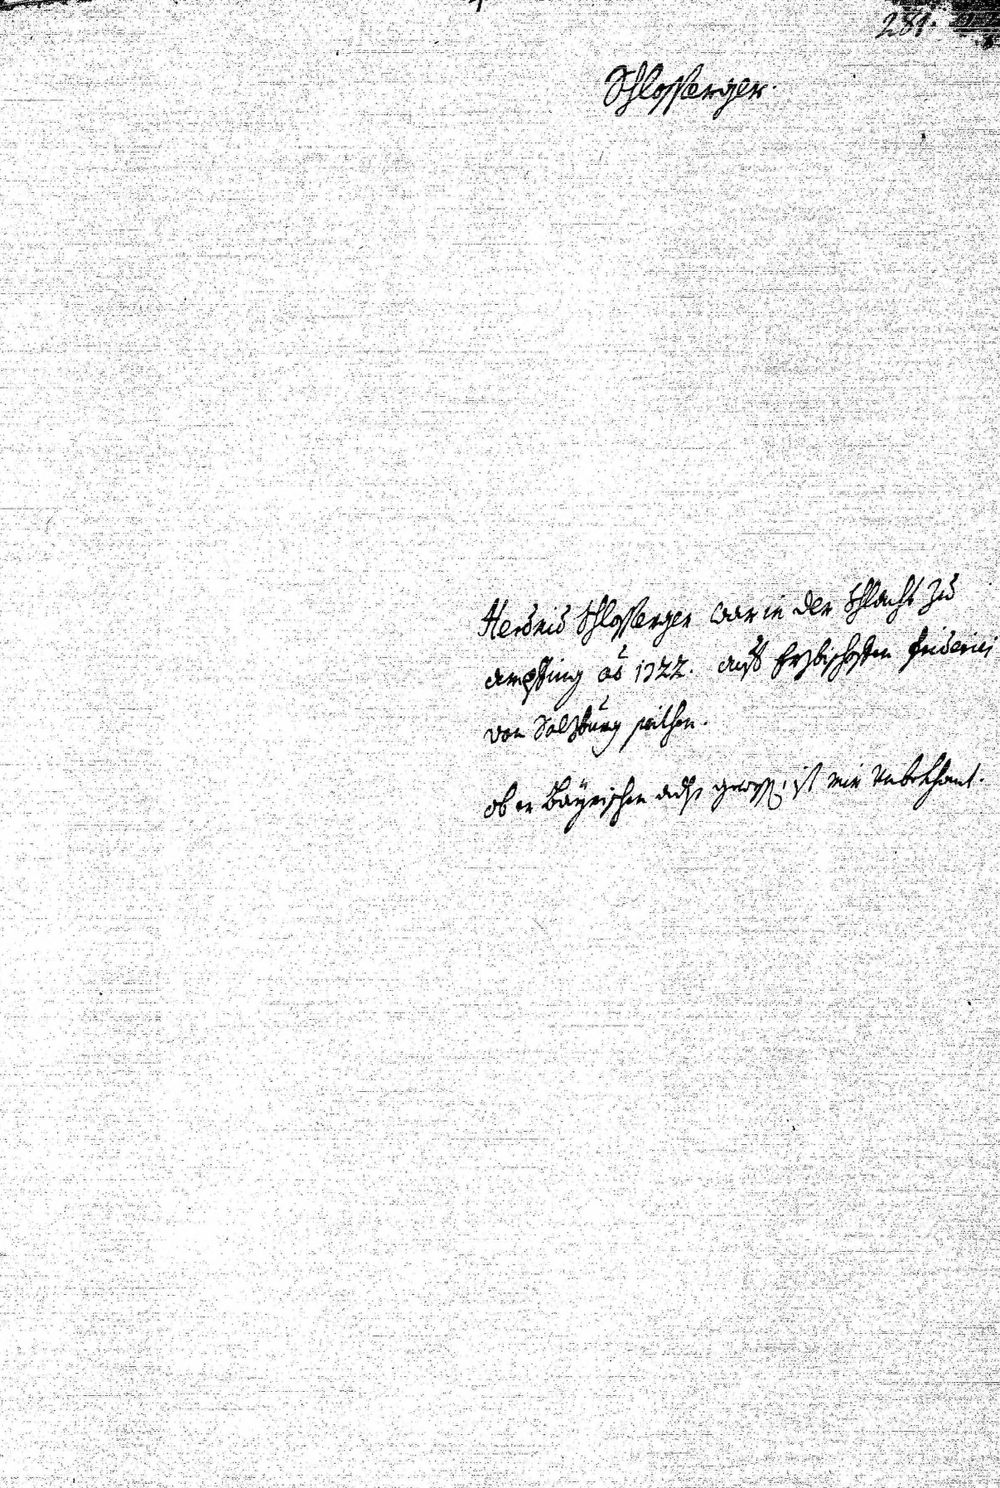 281.
Schlosserger.
Herdnid Schlosserger war in der Schlacht zu
ampfing aō 1322. auf Erzbischofen Friderici
von Salzburg seithen.
ob er Bayrischen adls gewest, ist mir Unbekhant.